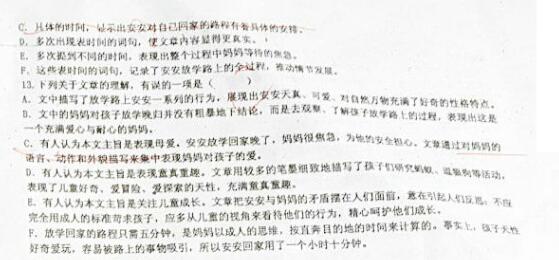 C. 具体的时间，显示出安安对自己回家的路程有着具体的安排。
D. 多次出现表时间的词句，使文章内容显得更真实。
E. 多次提到不同的时间，表现出整个过程中妈妈等待的焦急。
F. 这些表时间的词句，记录了安安放学路上的全过程，推动情节发展。
13. 下列关于文章的理解，有误的一项是（ ）
A. 文中描写了放学路上安安一系列的行为，展现出安安天真、可爱、对自然万物充满了好奇的性格特点。
B. 文中的妈妈对孩子放学晚归并没有粗暴地下结论，而是去观察、了解孩子放学路上的过程，表现出这是
一个充满爱心与耐心的妈妈。
C. 有人认为本文主旨是表现母爱。安安放学回家晚了，妈妈很焦急，为他的安全担心。文章通过对妈妈的
语言、动作和外貌描写来集中表现妈妈对孩子的爱。
D. 有人认为本文主旨是表现童真童趣。文章用较多的笔墨细致地描写了孩子们研究蚂蚁、逗狼狗等活动，
表现了儿童好奇、爱冒险、爱探索的天性，充满童真童趣。
E. 有人认为本文主旨是关注儿童成长。文章把安安与妈妈的矛盾摆在人们面前，意在引起人们反思：不应
完全用成人的标准苛求孩子，应多从儿童的视角来看待他们的行为，精心呵护他们成长。
F. 放学回家的路程只需五分钟，是妈妈以成人的思维，按直奔目的地的时间来计算的。事实上，孩子天性
好奇爱玩，容易被路上的事物吸引，所以安安回家用了一个小时十分钟。